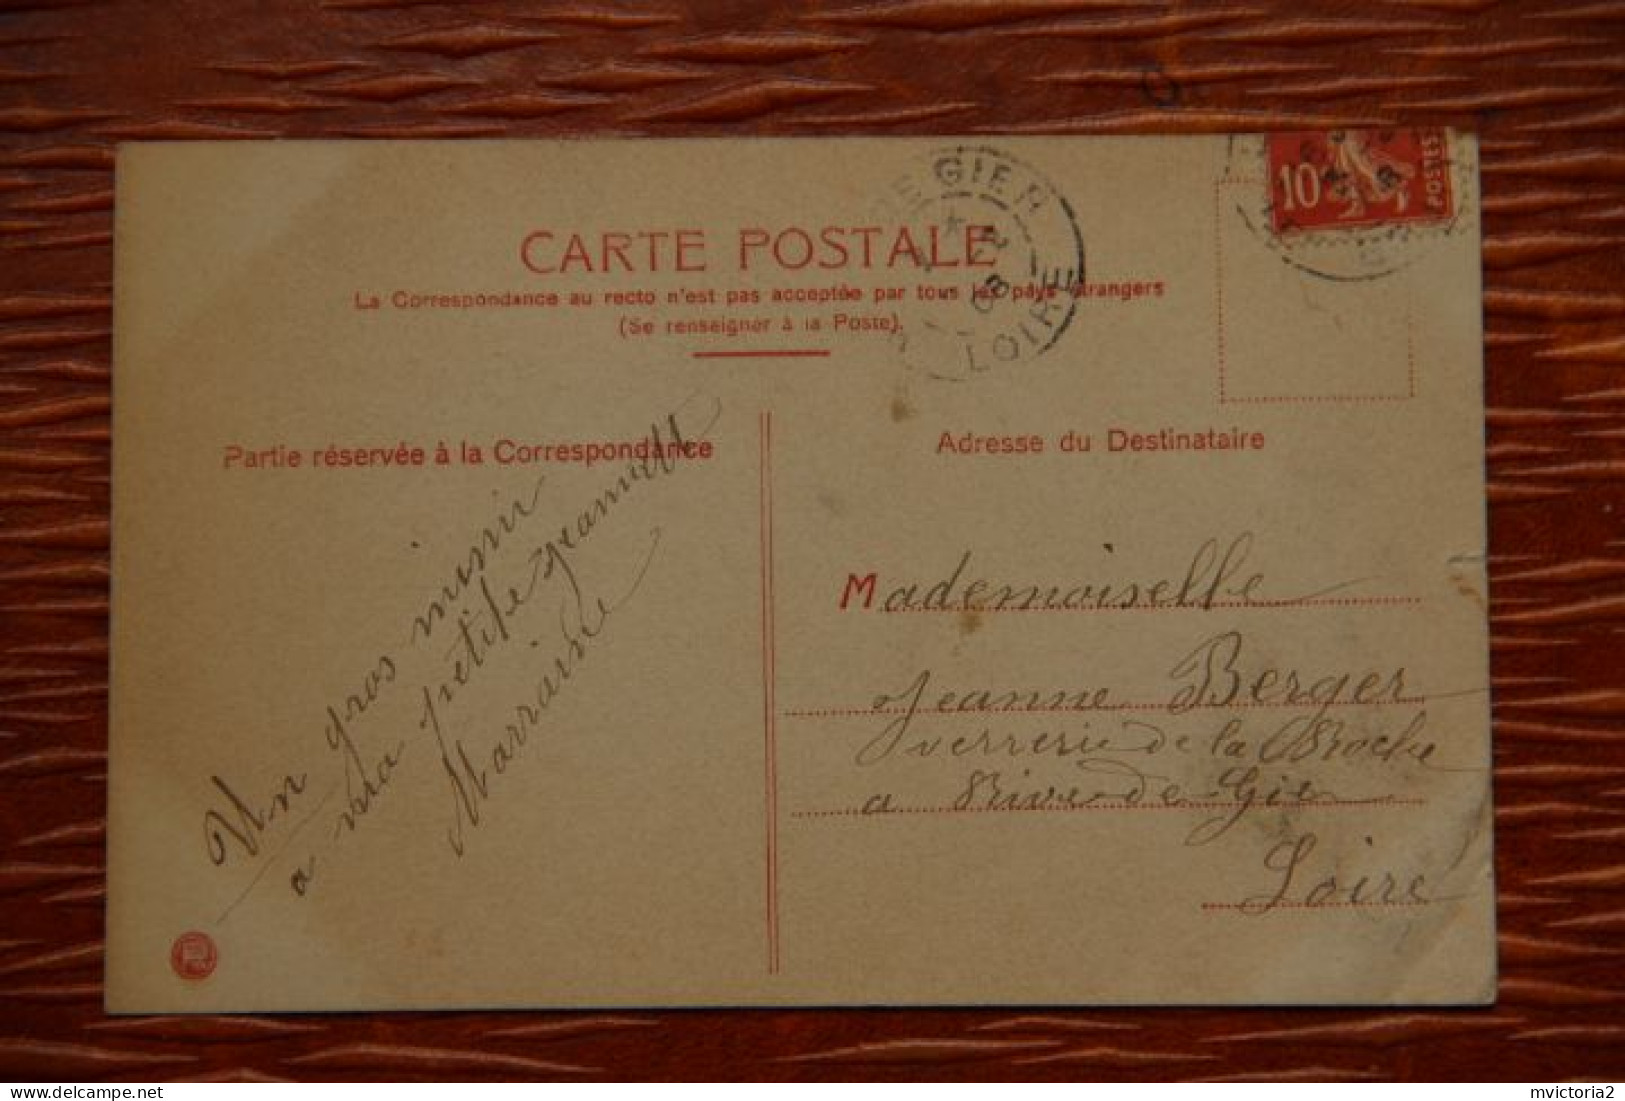 CARTE POSTALE
La Correspondance au recto n'est pas acceptée par tous les pays étrangers
(Se renseigner à la Poste).
DE GIER
08
LOIRE
10
POSTES
Partie réservée à la Correspondance
Un gros mimir
a ma petite Jeannette
Marraine
Adresse du Destinataire
Mademoiselle
Jeanne Berger
verrerie de la Roche
a Rive-de-Gier
Loire
mvictoria2